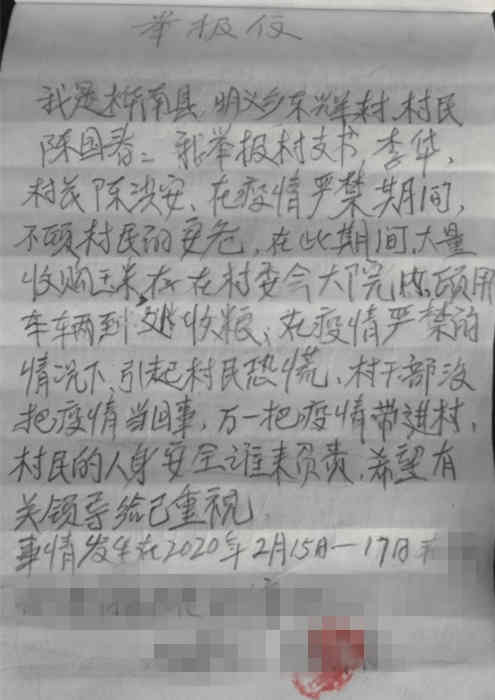 举报信
我是桦南县明义乡东辉村村民
陈国春二 我举报村支书,李华,
村民陈洪安、在疫情严禁期间,
不顾村民的安危,在此期间,大量
收购玉米,存在村委会大院内,雇用
车辆到处收粮,在疫情严禁的
情况下,引起村民恐慌、村干部没
把疫情当回事,万一把疫情带进村,
村民的人身安全谁来负责,希望有
关领导给已重视
事情发生在2020年2月15日一17日